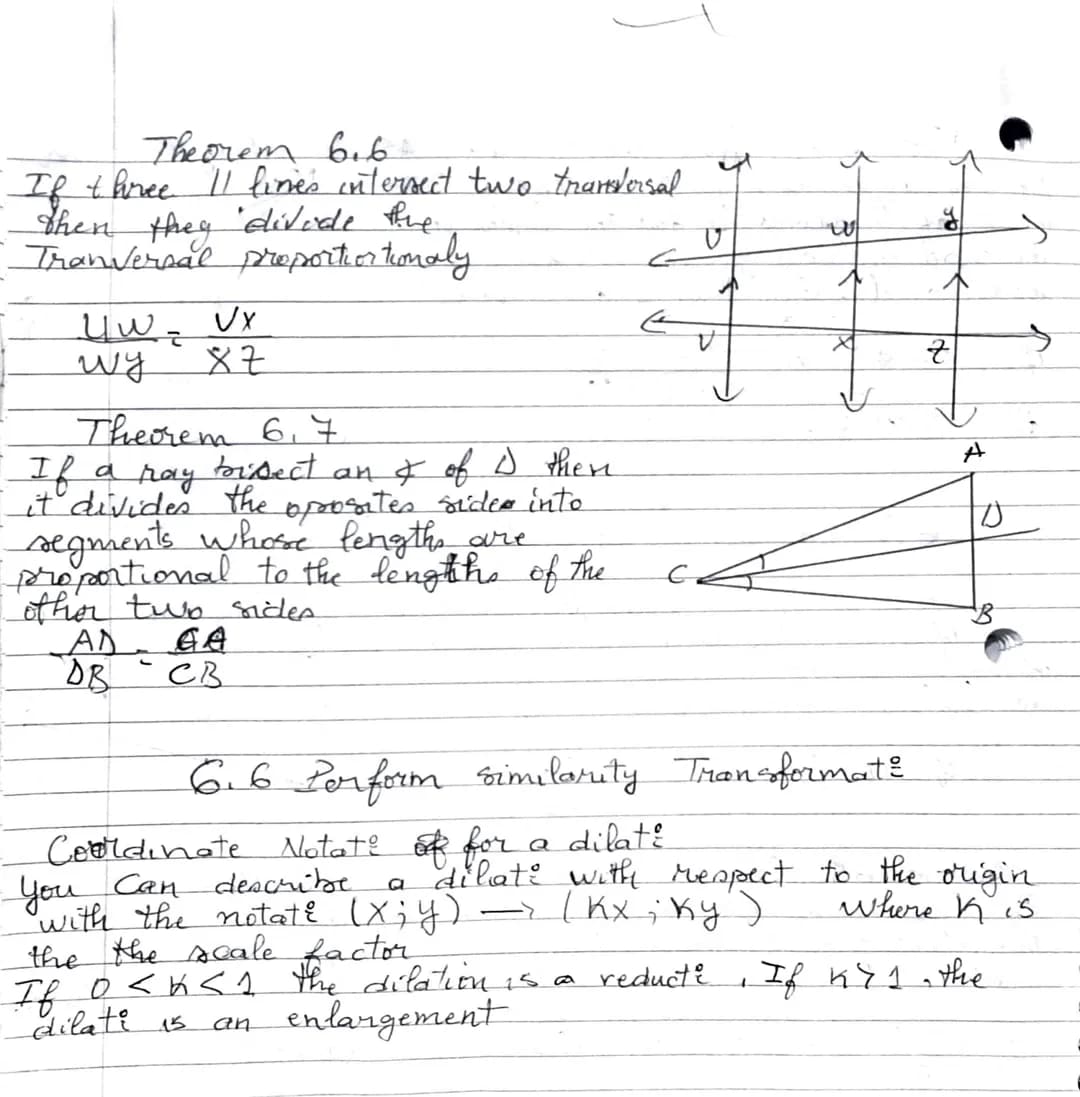 Theorem 6.6
If three // lines intersect two transversal
then they divide the
Tranversal proportiortionaly
UW = VX
WY XZ
U W y
V X Z
Theorem 6.7
If a ray bisect an ∡ of Δ then
it divides the oposites sides into
segments whose lengths are
proportional to the lengths of the
other two sides
AD = CA
DB CB
A
D
C
B
6.6 Perform similarity Transformat°
Coordinate Notat° for a dilat°
You Can describe a dilat° with respect to the origin
with the notat° (x;y) → (Kx;Ky) where K is
the the scale factor
If 0 < K < 1 the dilation is a reduct°, If K > 1, the
dilat° is an enlargement